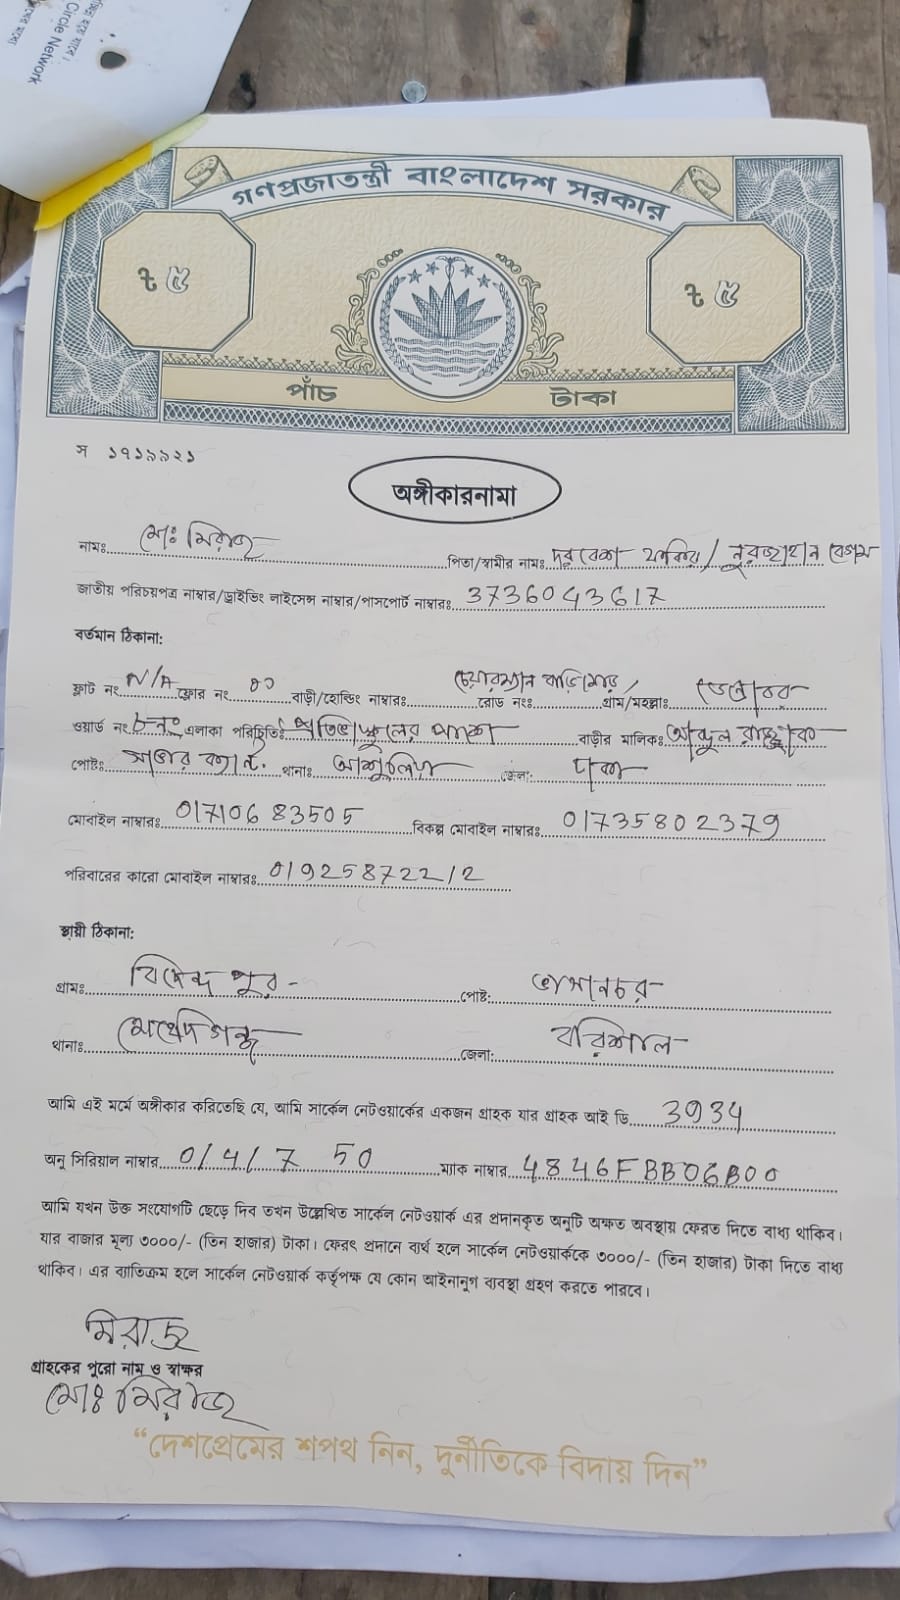 Circle Network
গণপ্রজাতন্ত্রী বাংলাদেশ সরকার
৳ ৫ ৳ ৫
পাঁচ টাকা
স ১৭১৯৯২১
অঙ্গীকারনামা
নামঃ মোঃ মিরাজ পিতা/স্বামীর নামঃ দরবেশ ফকির / নুরজাহান বেগম
জাতীয় পরিচয়পত্র নাম্বার/ড্রাইভিং লাইসেন্স নাম্বার/পাসপোর্ট নাম্বারঃ 3736043617
বর্তমান ঠিকানা:
ফ্লাট নং N/A ফ্লোর নং ০১ বাড়ী/হোল্ডিং নাম্বারঃ চেয়ারম্যান বাড়ি রোড নং গ্রাম/মহল্লাঃ
ওয়ার্ড নং ৮নং এলাকা পরিচিতিঃ স্কুলের পাশে বাড়ীর মালিকঃ আব্দুল রাজ্জাক
পোষ্টঃ সাভার ক্যান্ট. থানাঃ আশুলিয়া জেলা: ঢাকা
মোবাইল নাম্বারঃ 01710683505 বিকল্প মোবাইল নাম্বারঃ 01735802379
পরিবারের কারো মোবাইল নাম্বারঃ 01925872212
স্থায়ী ঠিকানা:
গ্রামঃ পোষ্ট: ভাসানচর
থানাঃ মেহেন্দিগঞ্জ জেলা: বরিশাল
আমি এই মর্মে অঙ্গীকার করিতেছি যে, আমি সার্কেল নেটওয়ার্কের একজন গ্রাহক যার গ্রাহক আই ডি 3934
অনু সিরিয়াল নাম্বার 0/4/7 50 ম্যাক নাম্বার 4846FBB06B00
আমি যখন উক্ত সংযোগটি ছেড়ে দিব তখন উল্লেখিত সার্কেল নেটওয়ার্ক এর প্রদানকৃত অনুটি অক্ষত অবস্থায় ফেরত দিতে বাধ্য থাকিব।
যার বাজার মূল্য ৩০০০/- (তিন হাজার) টাকা। ফেরৎ প্রদানে ব্যর্থ হলে সার্কেল নেটওয়ার্ককে ৩০০০/- (তিন হাজার) টাকা দিতে বাধ্য
থাকিব। এর ব্যাতিক্রম হলে সার্কেল নেটওয়ার্ক কর্তৃপক্ষ যে কোন আইনানুগ ব্যবস্থা গ্রহণ করতে পারবে।
মিরাজ
গ্রাহকের পুরো নাম ও স্বাক্ষর
মোঃ মিরাজ
“দেশপ্রেমের শপথ নিন, দুর্নীতিকে বিদায় দিন”